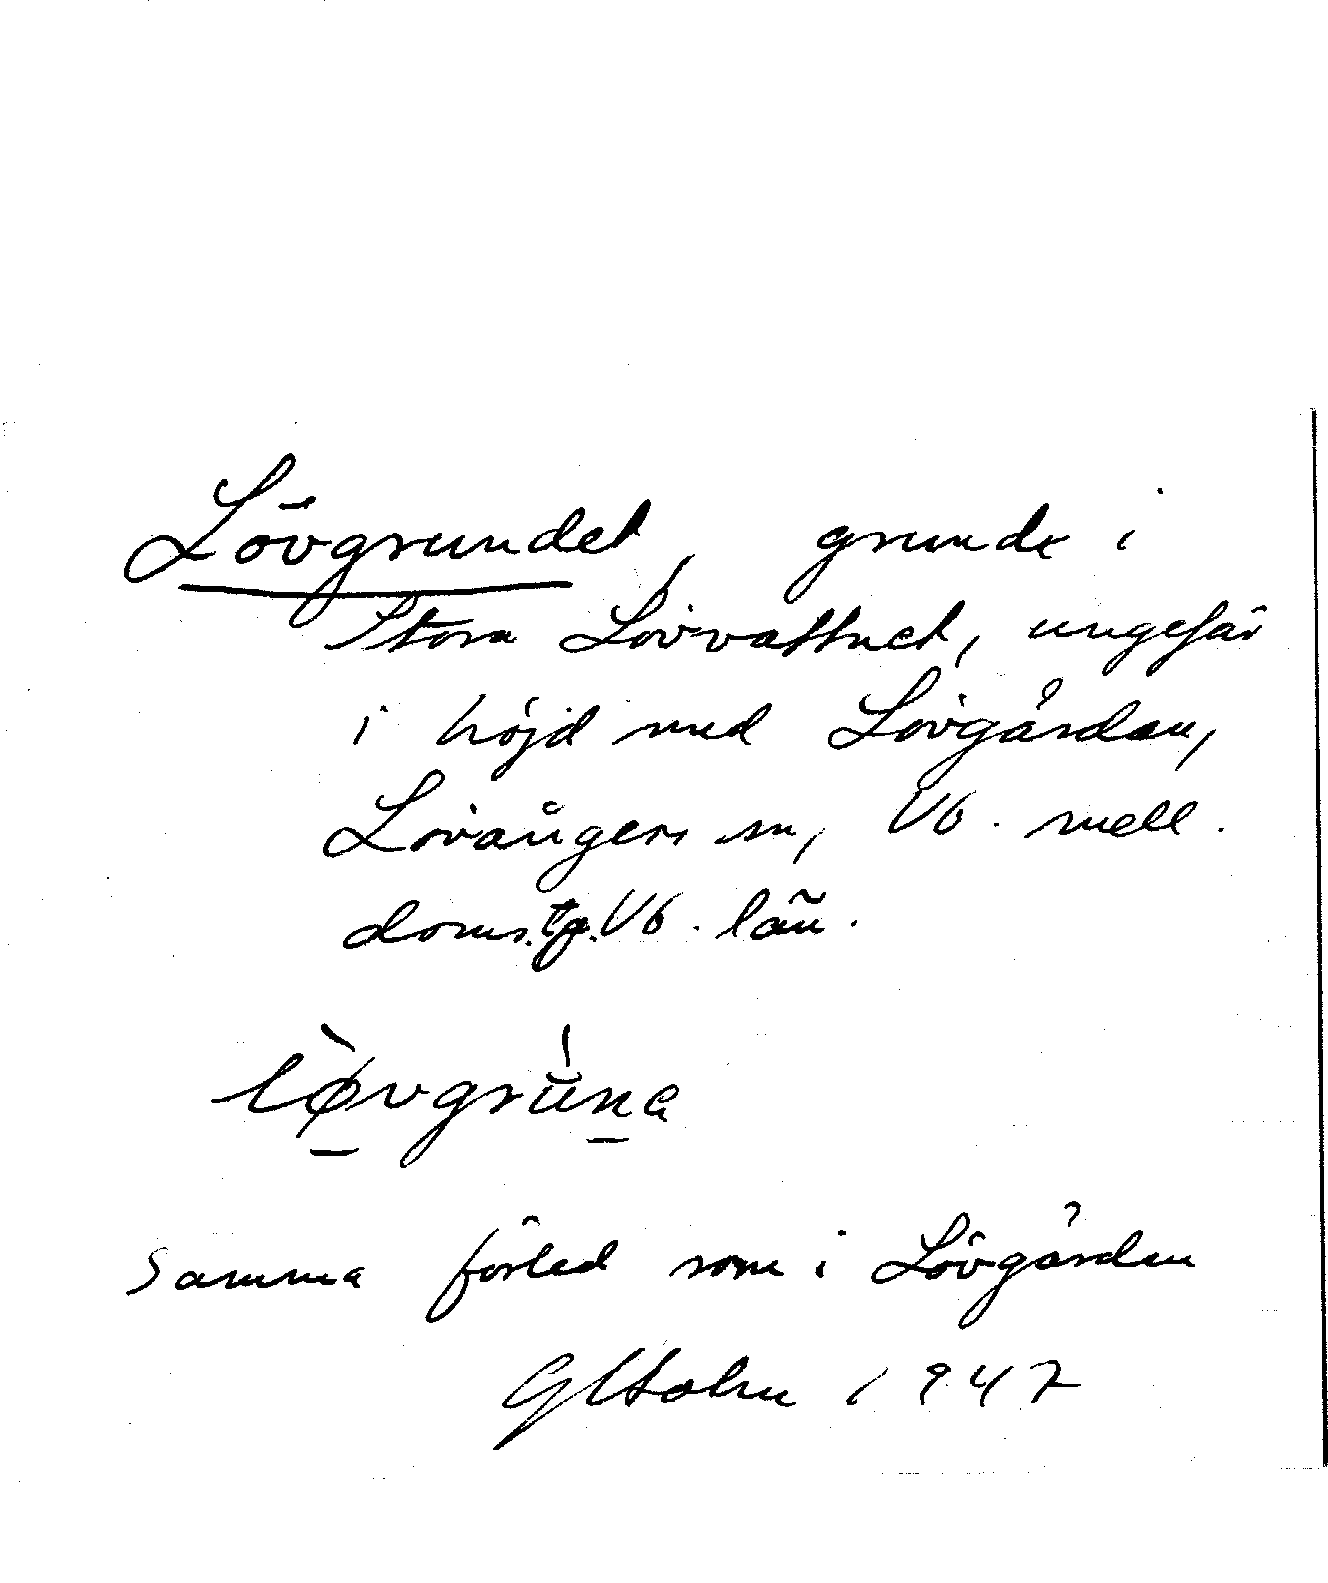 Lövgrundet, grund i
Stora Lövvattnet, ungefär
i höjd med Lövgården,
Lövångers sn, Vb. mell.
doms. tg. Vb. län.
lø̀vgrúna
Samma förled som i Lövgården
G Holm 1947